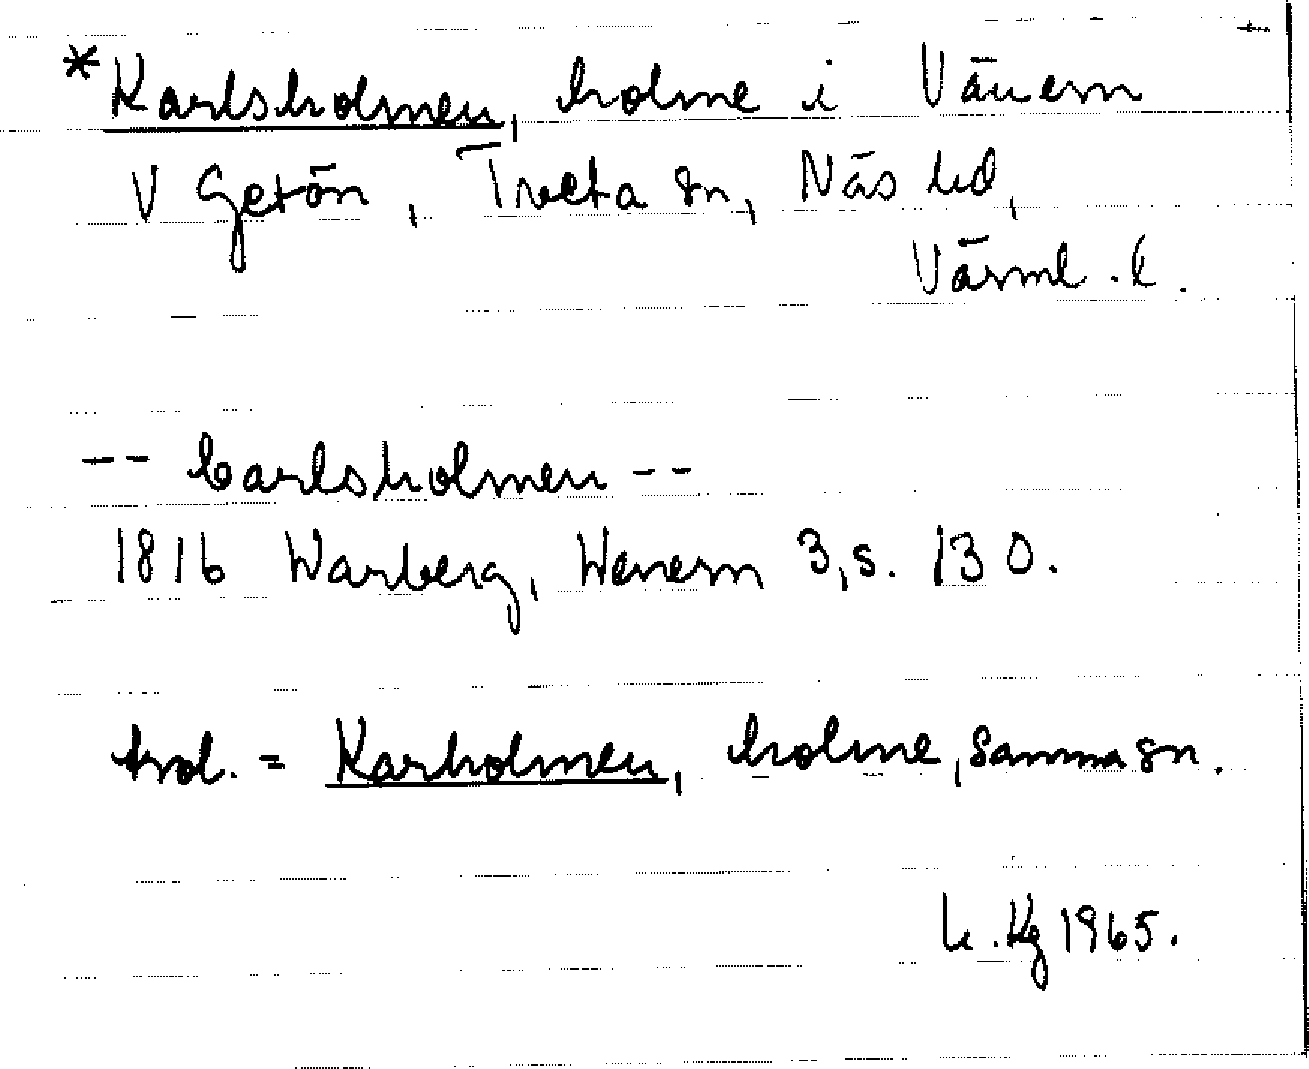 *Karlsholmen, holme i Vänern
V Getön, Tveta sn, Näs hd,
Värml. l.
-- Carlsholmen --
1816 Warberg, Wenern 3, s. 130.
trol. = Karholmen, holme, samma sn.
Kg 1965.